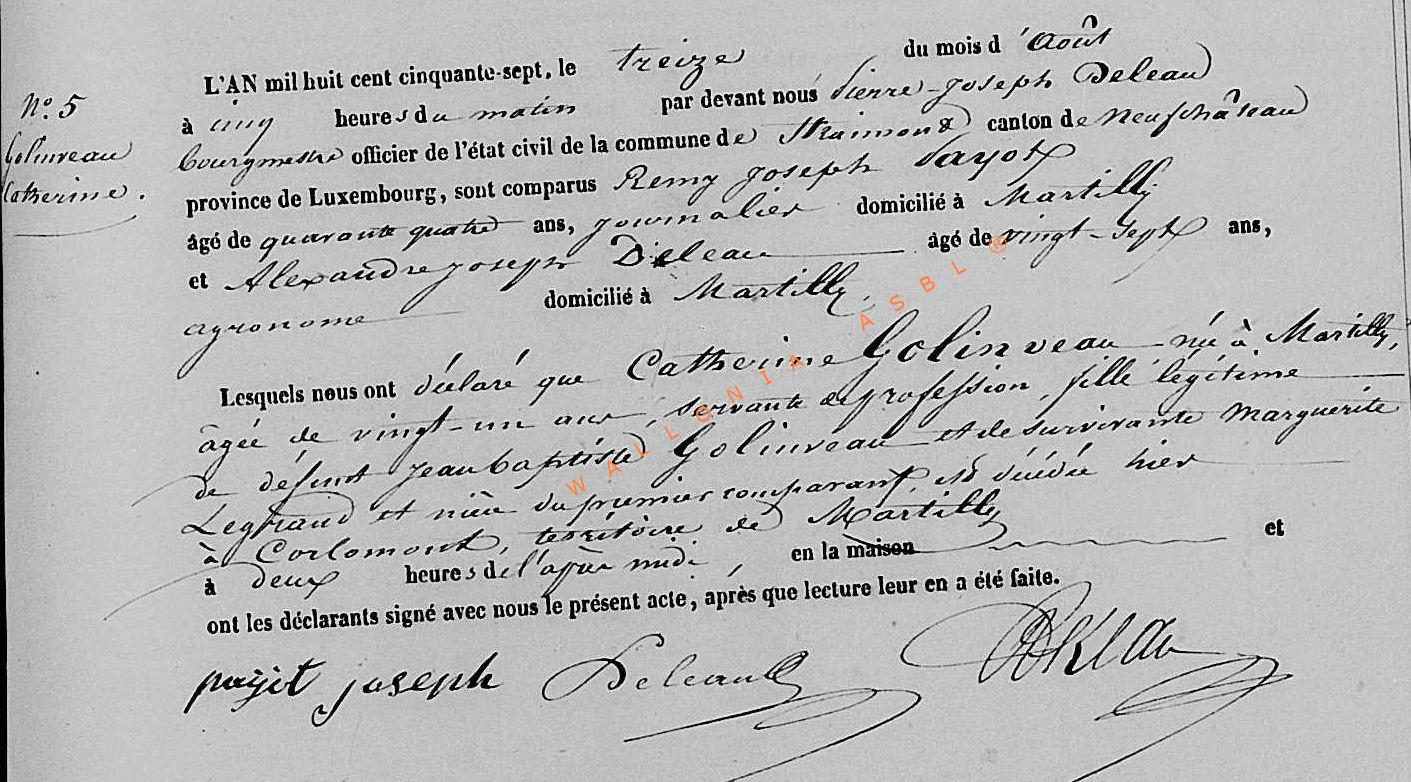 N° 5
Golinveau
Catherine.
L'AN mil huit cent cinquante-sept, le treize du mois d'Août
à cinq heures du matin par devant nous Pierre-Joseph Deleau
bourgmestre officier de l'état civil de la commune de Straimont canton de Neufchâteau
province de Luxembourg, sont comparus Remy Joseph Payot
âgé de quarante quatre ans, journalier domicilié à Martilly
et Alexandre joseph Deleau âgé de vingt-sept ans,
agronome domicilié à Martilly.
Lesquels nous ont déclaré que Catherine Golinveau née à Martilly,
âgée de vingt-un ans, servante de profession, fille légitime
de défunt Jean baptiste Golinveau et de survivante Marguerite
Legrand et nièce du premier comparant, est décédée hier
à Corlomont, territoire de Martilly
à deux heures de l'après midi, en la maison et
ont les déclarants signé avec nous le présent acte, après que lecture leur en a été faite.
payjet joseph Deleau
WALLONIA ASBL ®